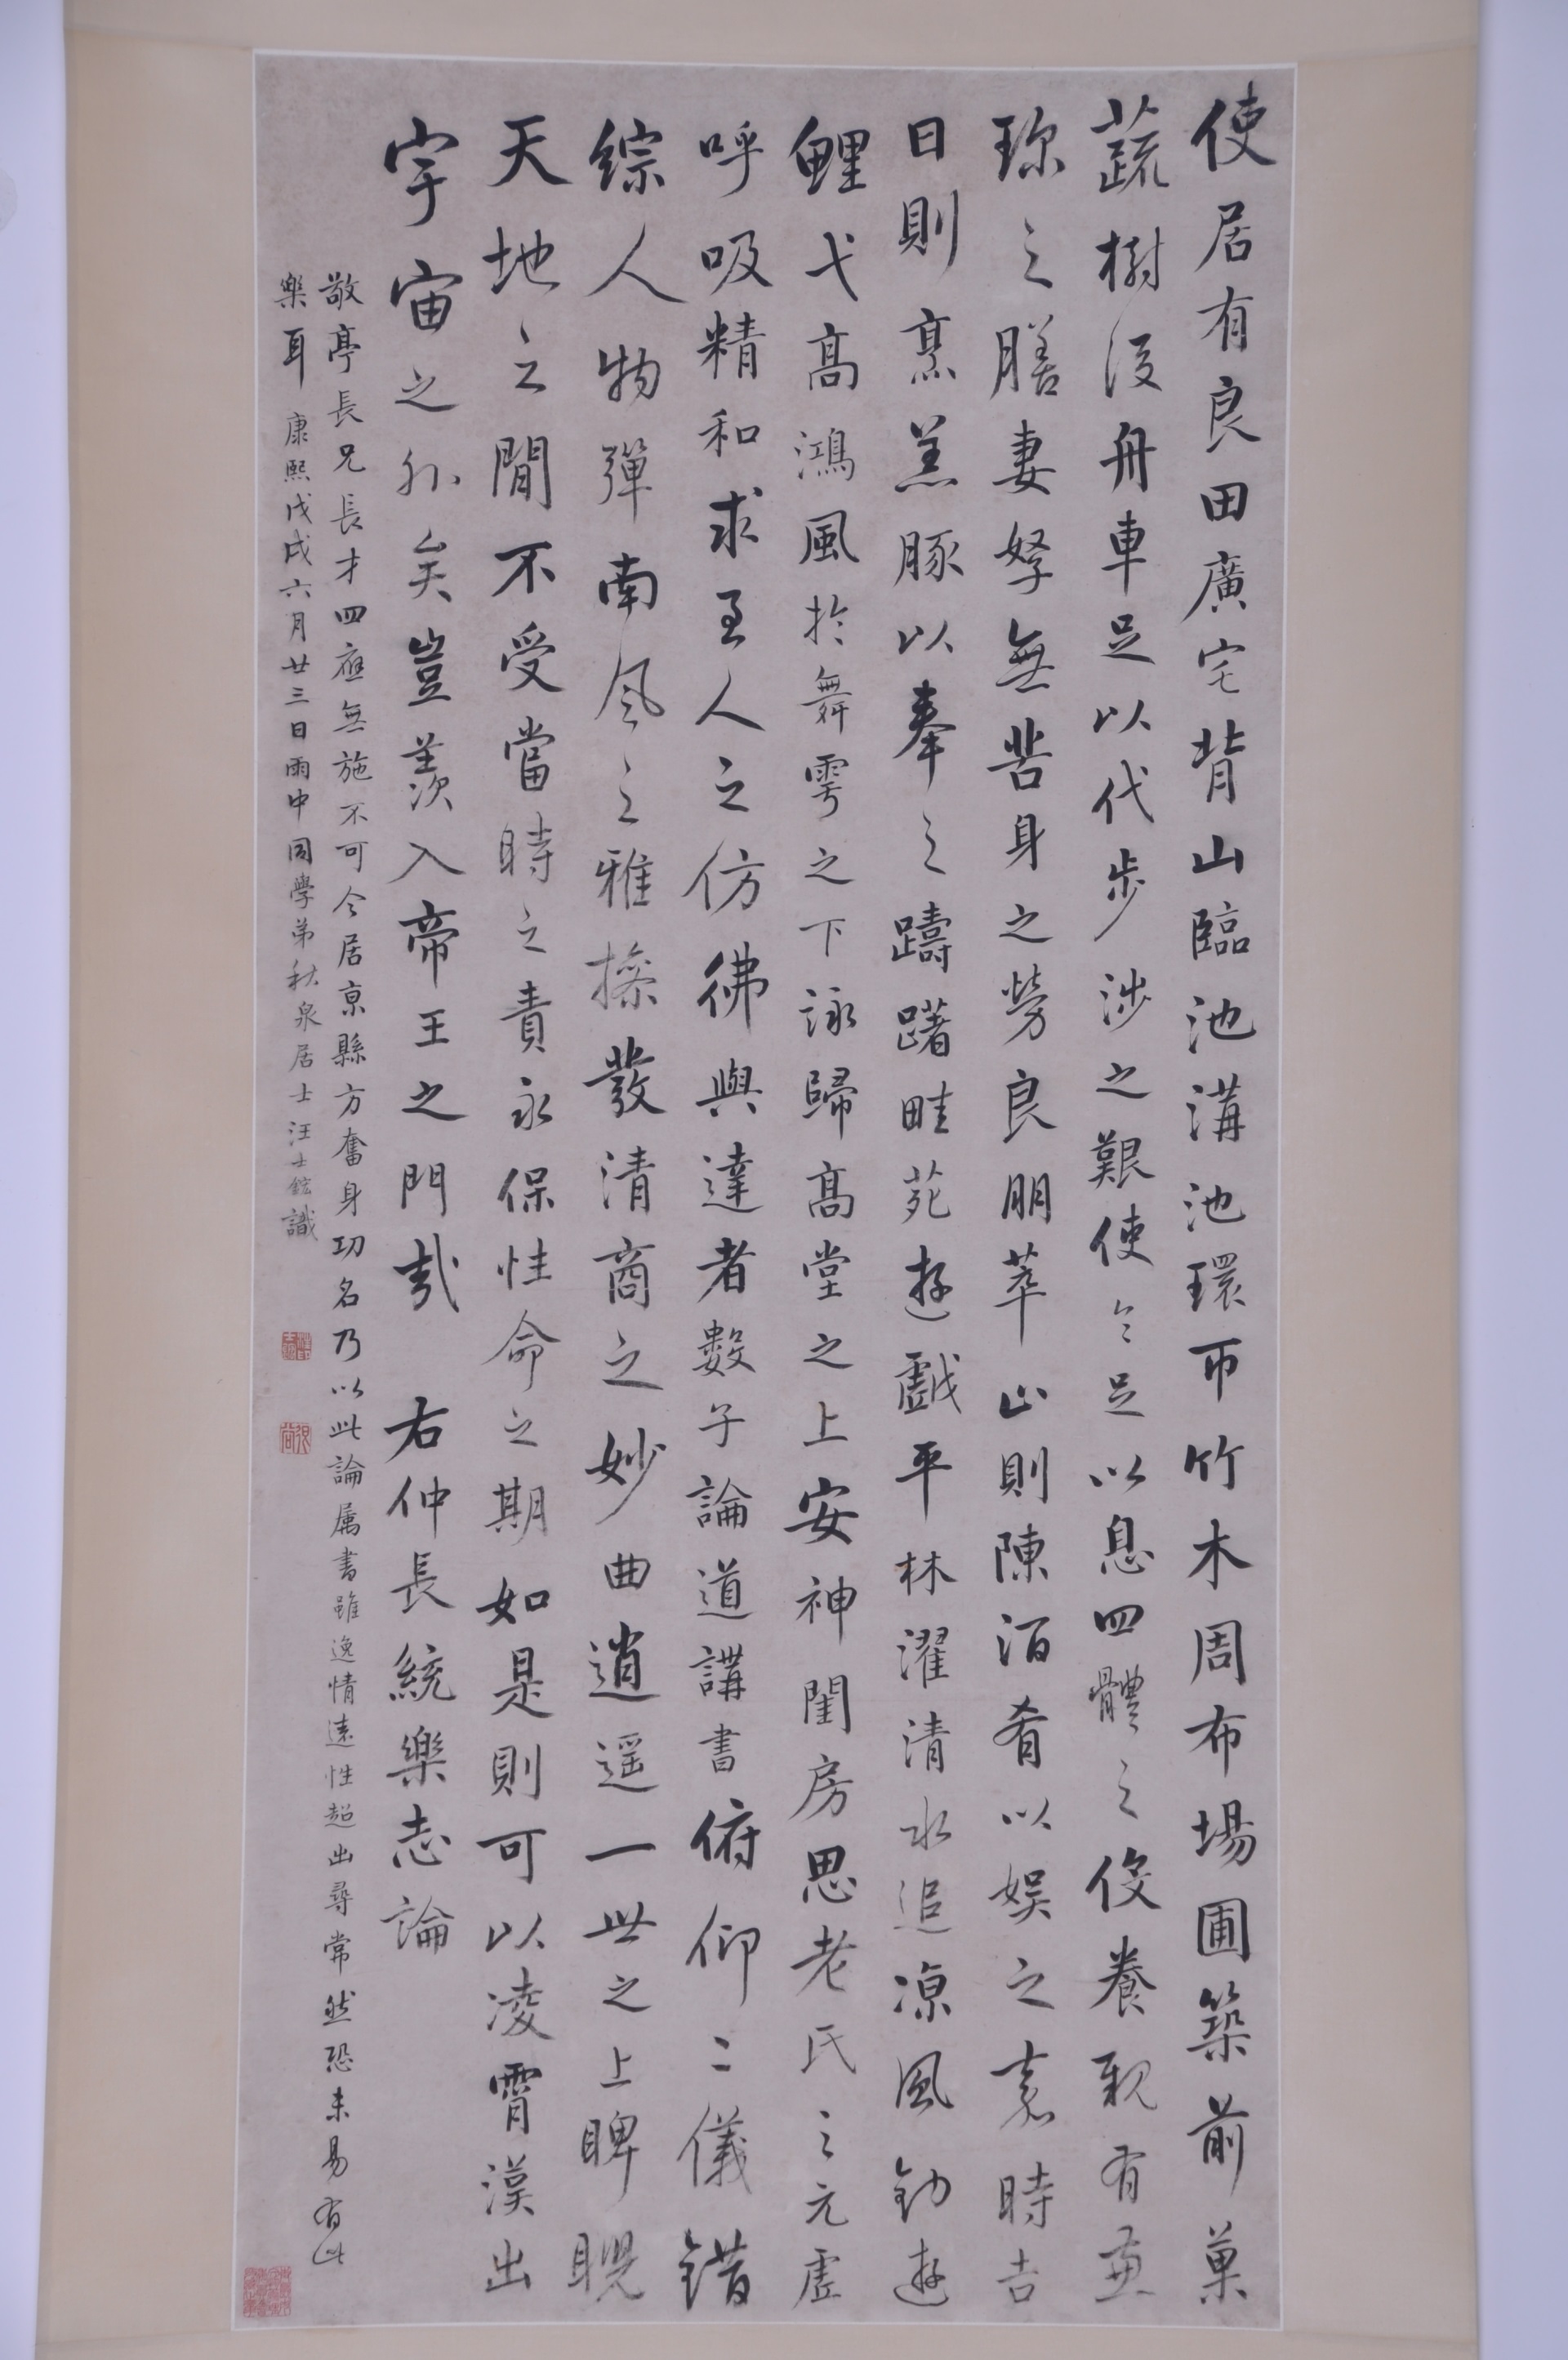 使居有良田廣宅背山臨池溝池環帀竹木周布場圃築前菓
蔬樹後舟車足以代步涉之艱使令足以息四體之役養親有兼
珎之膳妻孥無苦身之勞良朋萃止則陳酒肴以娛之嘉時吉
日則烹羔豚以奉之躊躇畦苑遊戲平林濯清水追涼風釣遊
鯉弋高鴻風於舞雩之下詠歸高堂之上安神閨房思老氏之元虛
呼吸精和求至人之仿彿與達者數子論道講書俯仰二儀錯
綜人物彈南風之雅操發清商之妙曲逍遥一世之上睥睨
天地之間不受當時之責永保性命之期如是則可以凌霄漢出
宇宙之外矣豈羨入帝王之門哉 右仲長統樂志論
敬亭長兄長才四應無施不可今居京縣方奮身功名乃以此論属書雖逸情遠性超出尋常然恐未易有此
樂耳 康熙戊戌六月廿三日雨中同學弟秋泉居士汪士鋐識